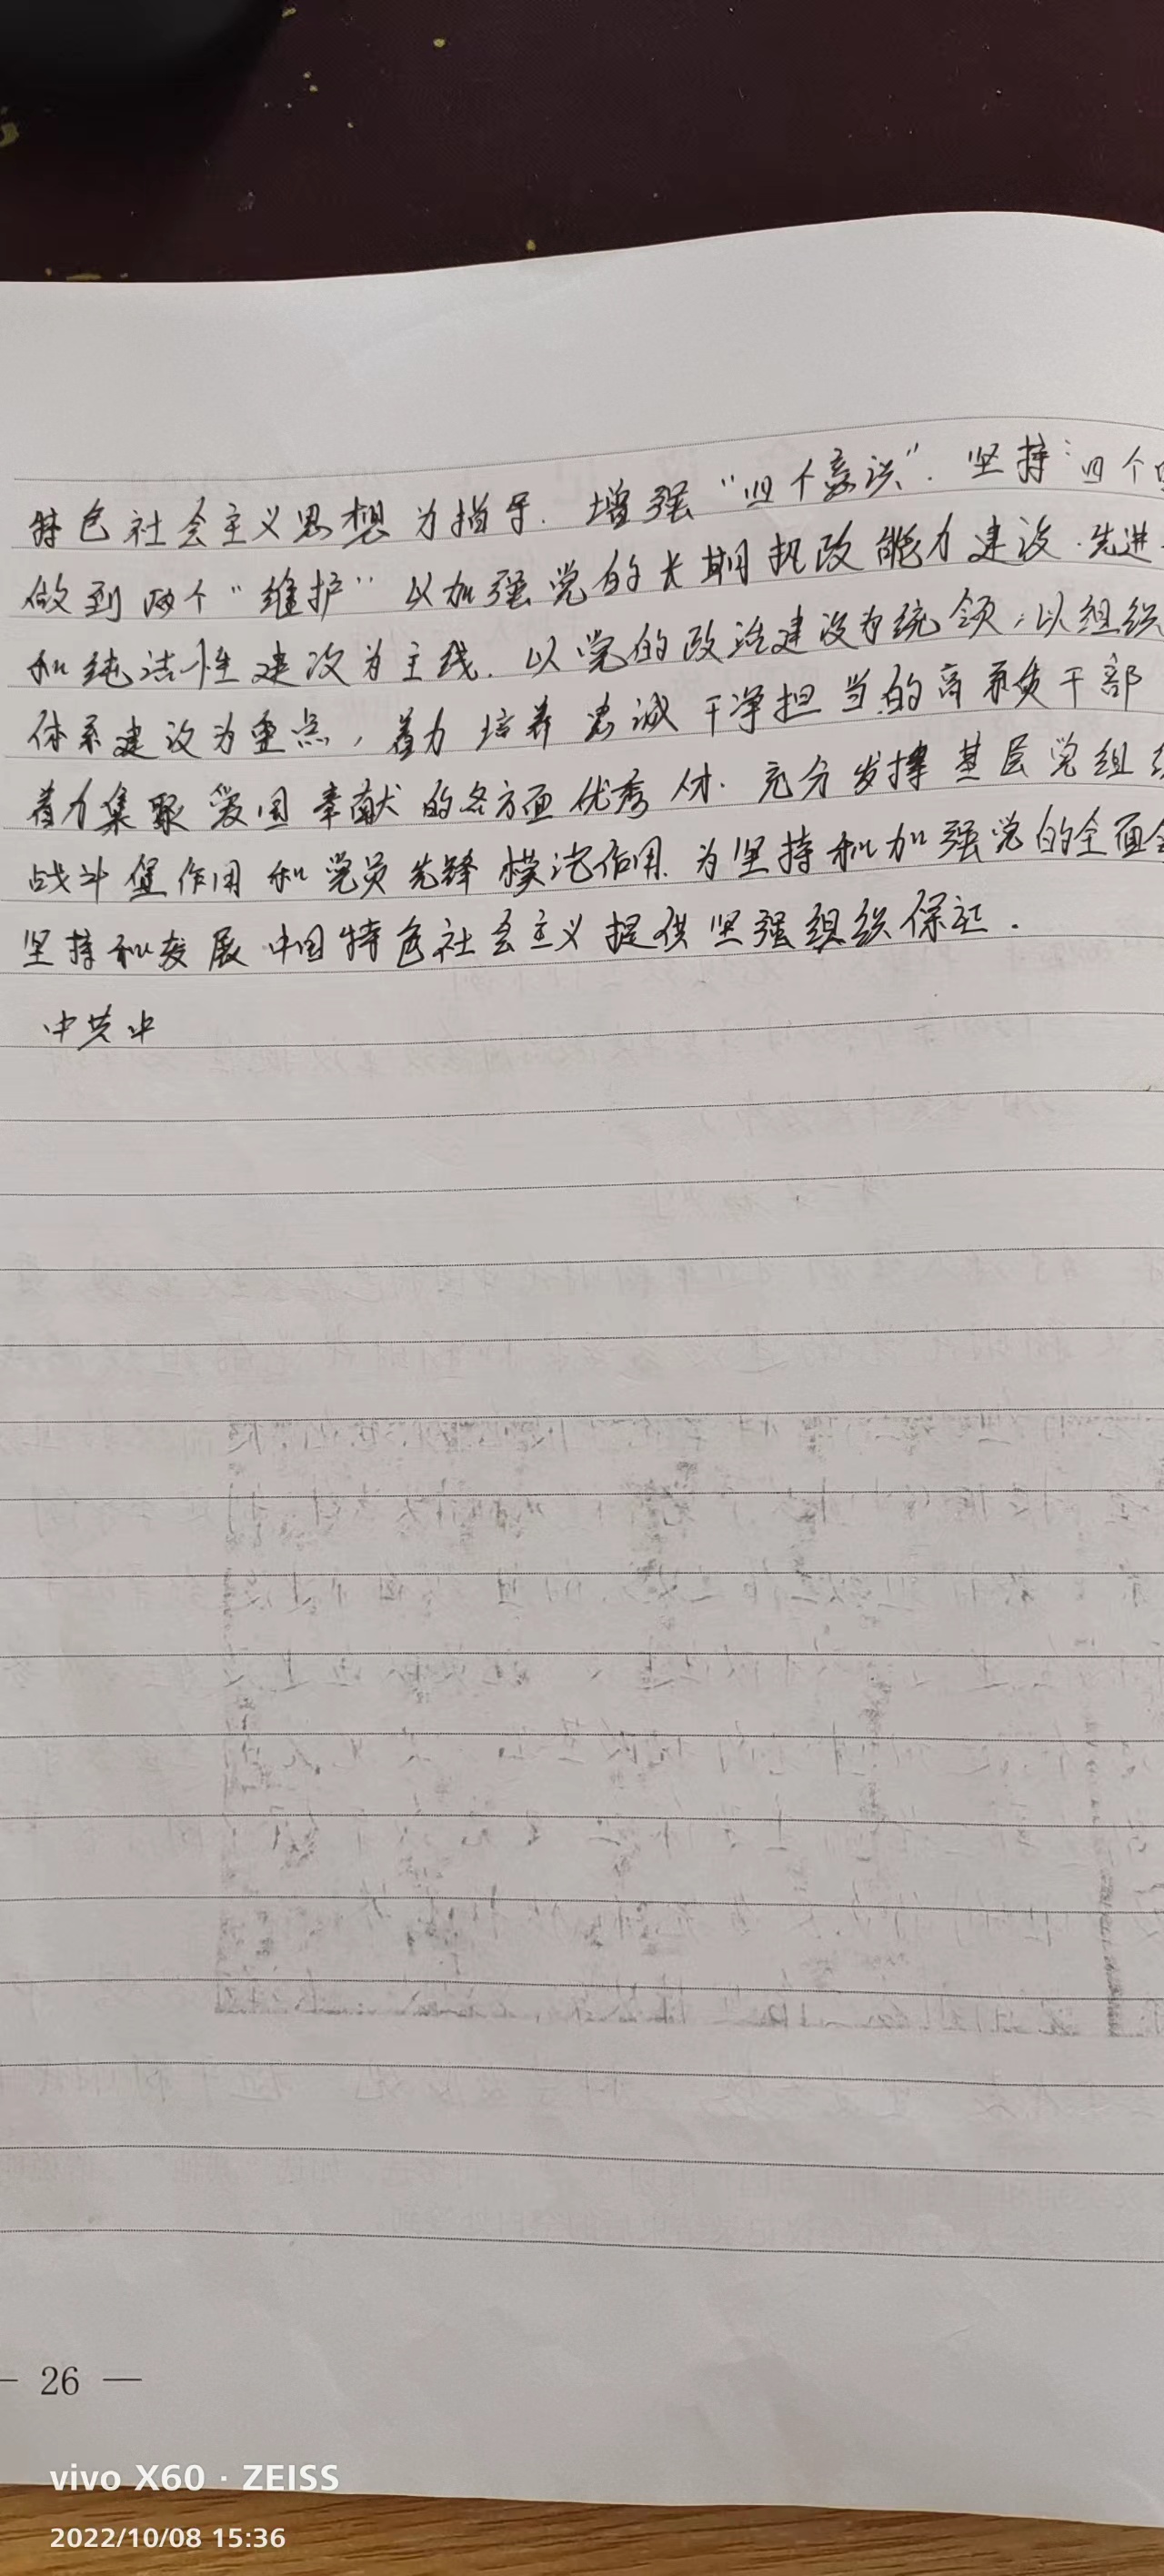 特色社会主义思想为指导.增强“四个意识”.坚持“四个
做到两个“维护”以加强党的长期执政能力建设.先进
和纯洁性建设为主线.以党的政治建设为统领,以组织
体系建设为重点,着力培养忠诚干净担当的高素质干部
着力集聚爱国奉献的各方面优秀人才.充分发挥基层党组
战斗堡作用和党员先锋模范作用.为坚持和加强党的全面
坚持和发展中国特色社会主义提供坚强组织保证.
中共中
— 26 —
vivo X60 · ZEISS
2022/10/08 15:36